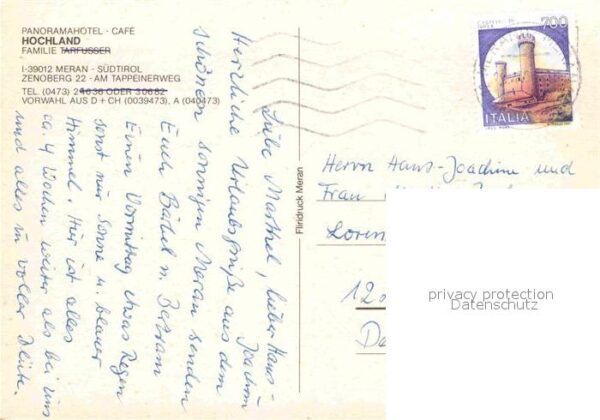 PANORAMAHOTEL · CAFE
HOCHLAND
FAMILIE TARFUSSER
I-39012 MERAN - SÜDTIROL
ZENOBERG 22 - AM TAPPEINERWEG
TEL. (0473) 24636 ODER 30682
VORWAHL AUS D + CH (0039473), A (040473)
Liebe Marthel, lieber Hans-
Joachim
Herzliche Urlaubsgrüße aus dem
schönen sonnigen Meran senden
Euch Bärbel u. Bertram
Einen Vormittag etwas Regen
sonst nur Sonne u. blauer
Himmel. Hier ist alles
ca. 4 Wochen weiter als bei uns
und alles in voller Blüte.
Fliridruck Meran
700
ITALIA
Herrn Hans-Joachim und
Frau
Loren
12
D
privacy protection
Datenschutz